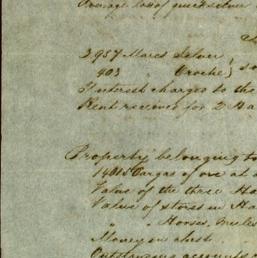 Average loss of quicksilver
3957 Marcs Silver
403 " Oroche }
Interest charges to the
Rent received for 2 Ha
Property belonging to
Cargas of ore at
Value of the three Ha
Value of stores in Ha
" Horses, Mules
Money in chest
Outstanding accounts